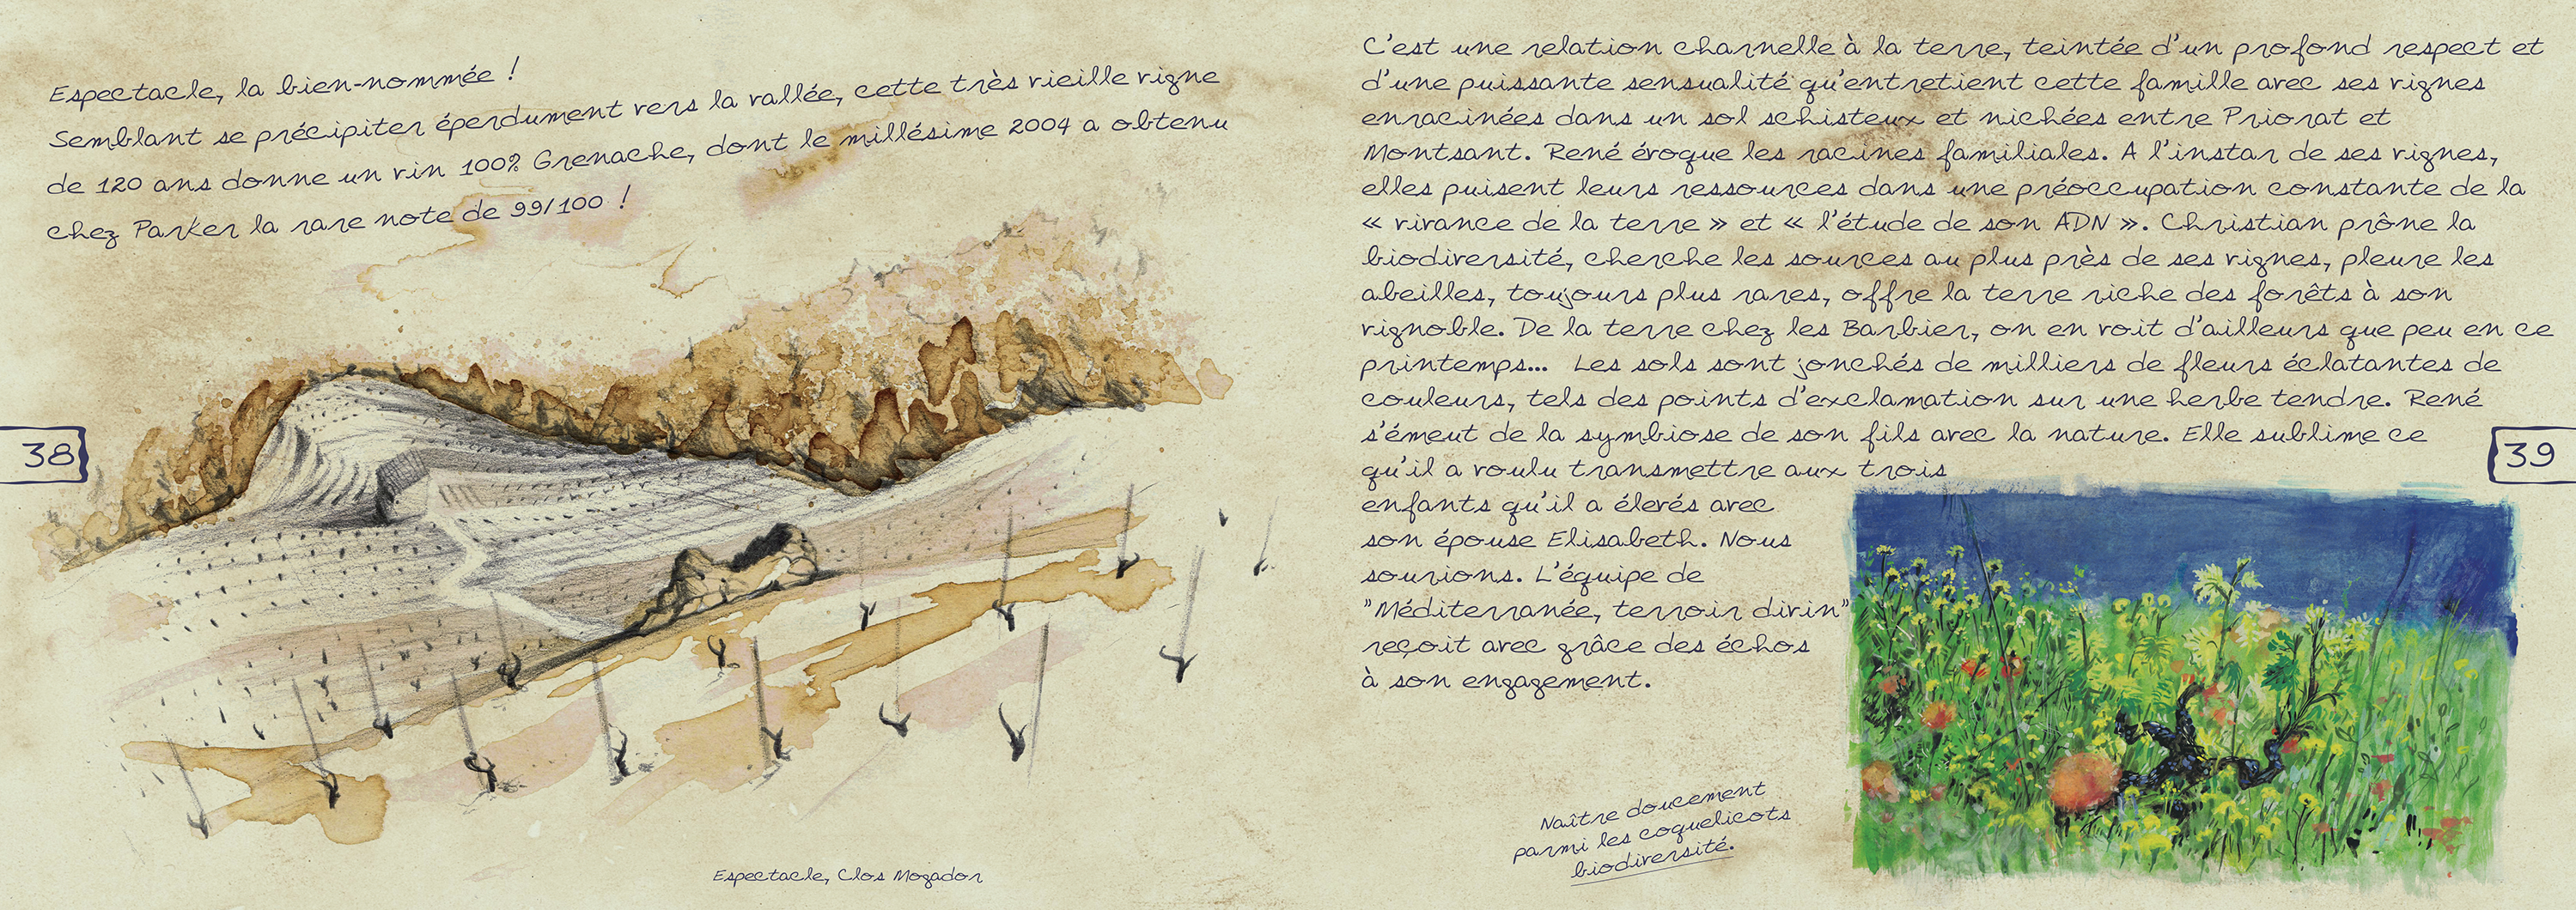 Espectacle, la bien-nommée !
Semblant se précipiter éperdument vers la vallée, cette très vieille vigne
de 120 ans donne un vin 100% Grenache, dont le millésime 2004 a obtenu
chez Parker la rare note de 99/100 !
38
Espectacle, Clos Mogador
C'est une relation charnelle à la terre, teintée d'un profond respect et
d'une puissante sensualité qu'entretient cette famille avec ses vignes
enracinées dans un sol schisteux et nichées entre Priorat et
Montsant. René évoque les racines familiales. A l'instar de ses vignes,
elles puisent leurs ressources dans une préoccupation constante de la
« vivance de la terre » et « l'étude de son ADN ». Christian prône la
biodiversité, cherche les sources au plus près de ses vignes, pleure les
abeilles, toujours plus rares, offre la terre riche des forêts à son
vignoble. De la terre chez les Barbier, on en voit d'ailleurs que peu en ce
printemps... Les sols sont jonchés de milliers de fleurs éclatantes de
couleurs, tels des points d'exclamation sur une herbe tendre. René
s'émeut de la symbiose de son fils avec la nature. Elle sublime ce
qu'il a voulu transmettre aux trois
enfants qu'il a élevés avec
son épouse Elisabeth. Nous
sourions. L'équipe de
"Méditerranée, terroir divin"
reçoit avec grâce des échos
à son engagement.
39
Naître doucement
parmi les coquelicots
biodiversité.